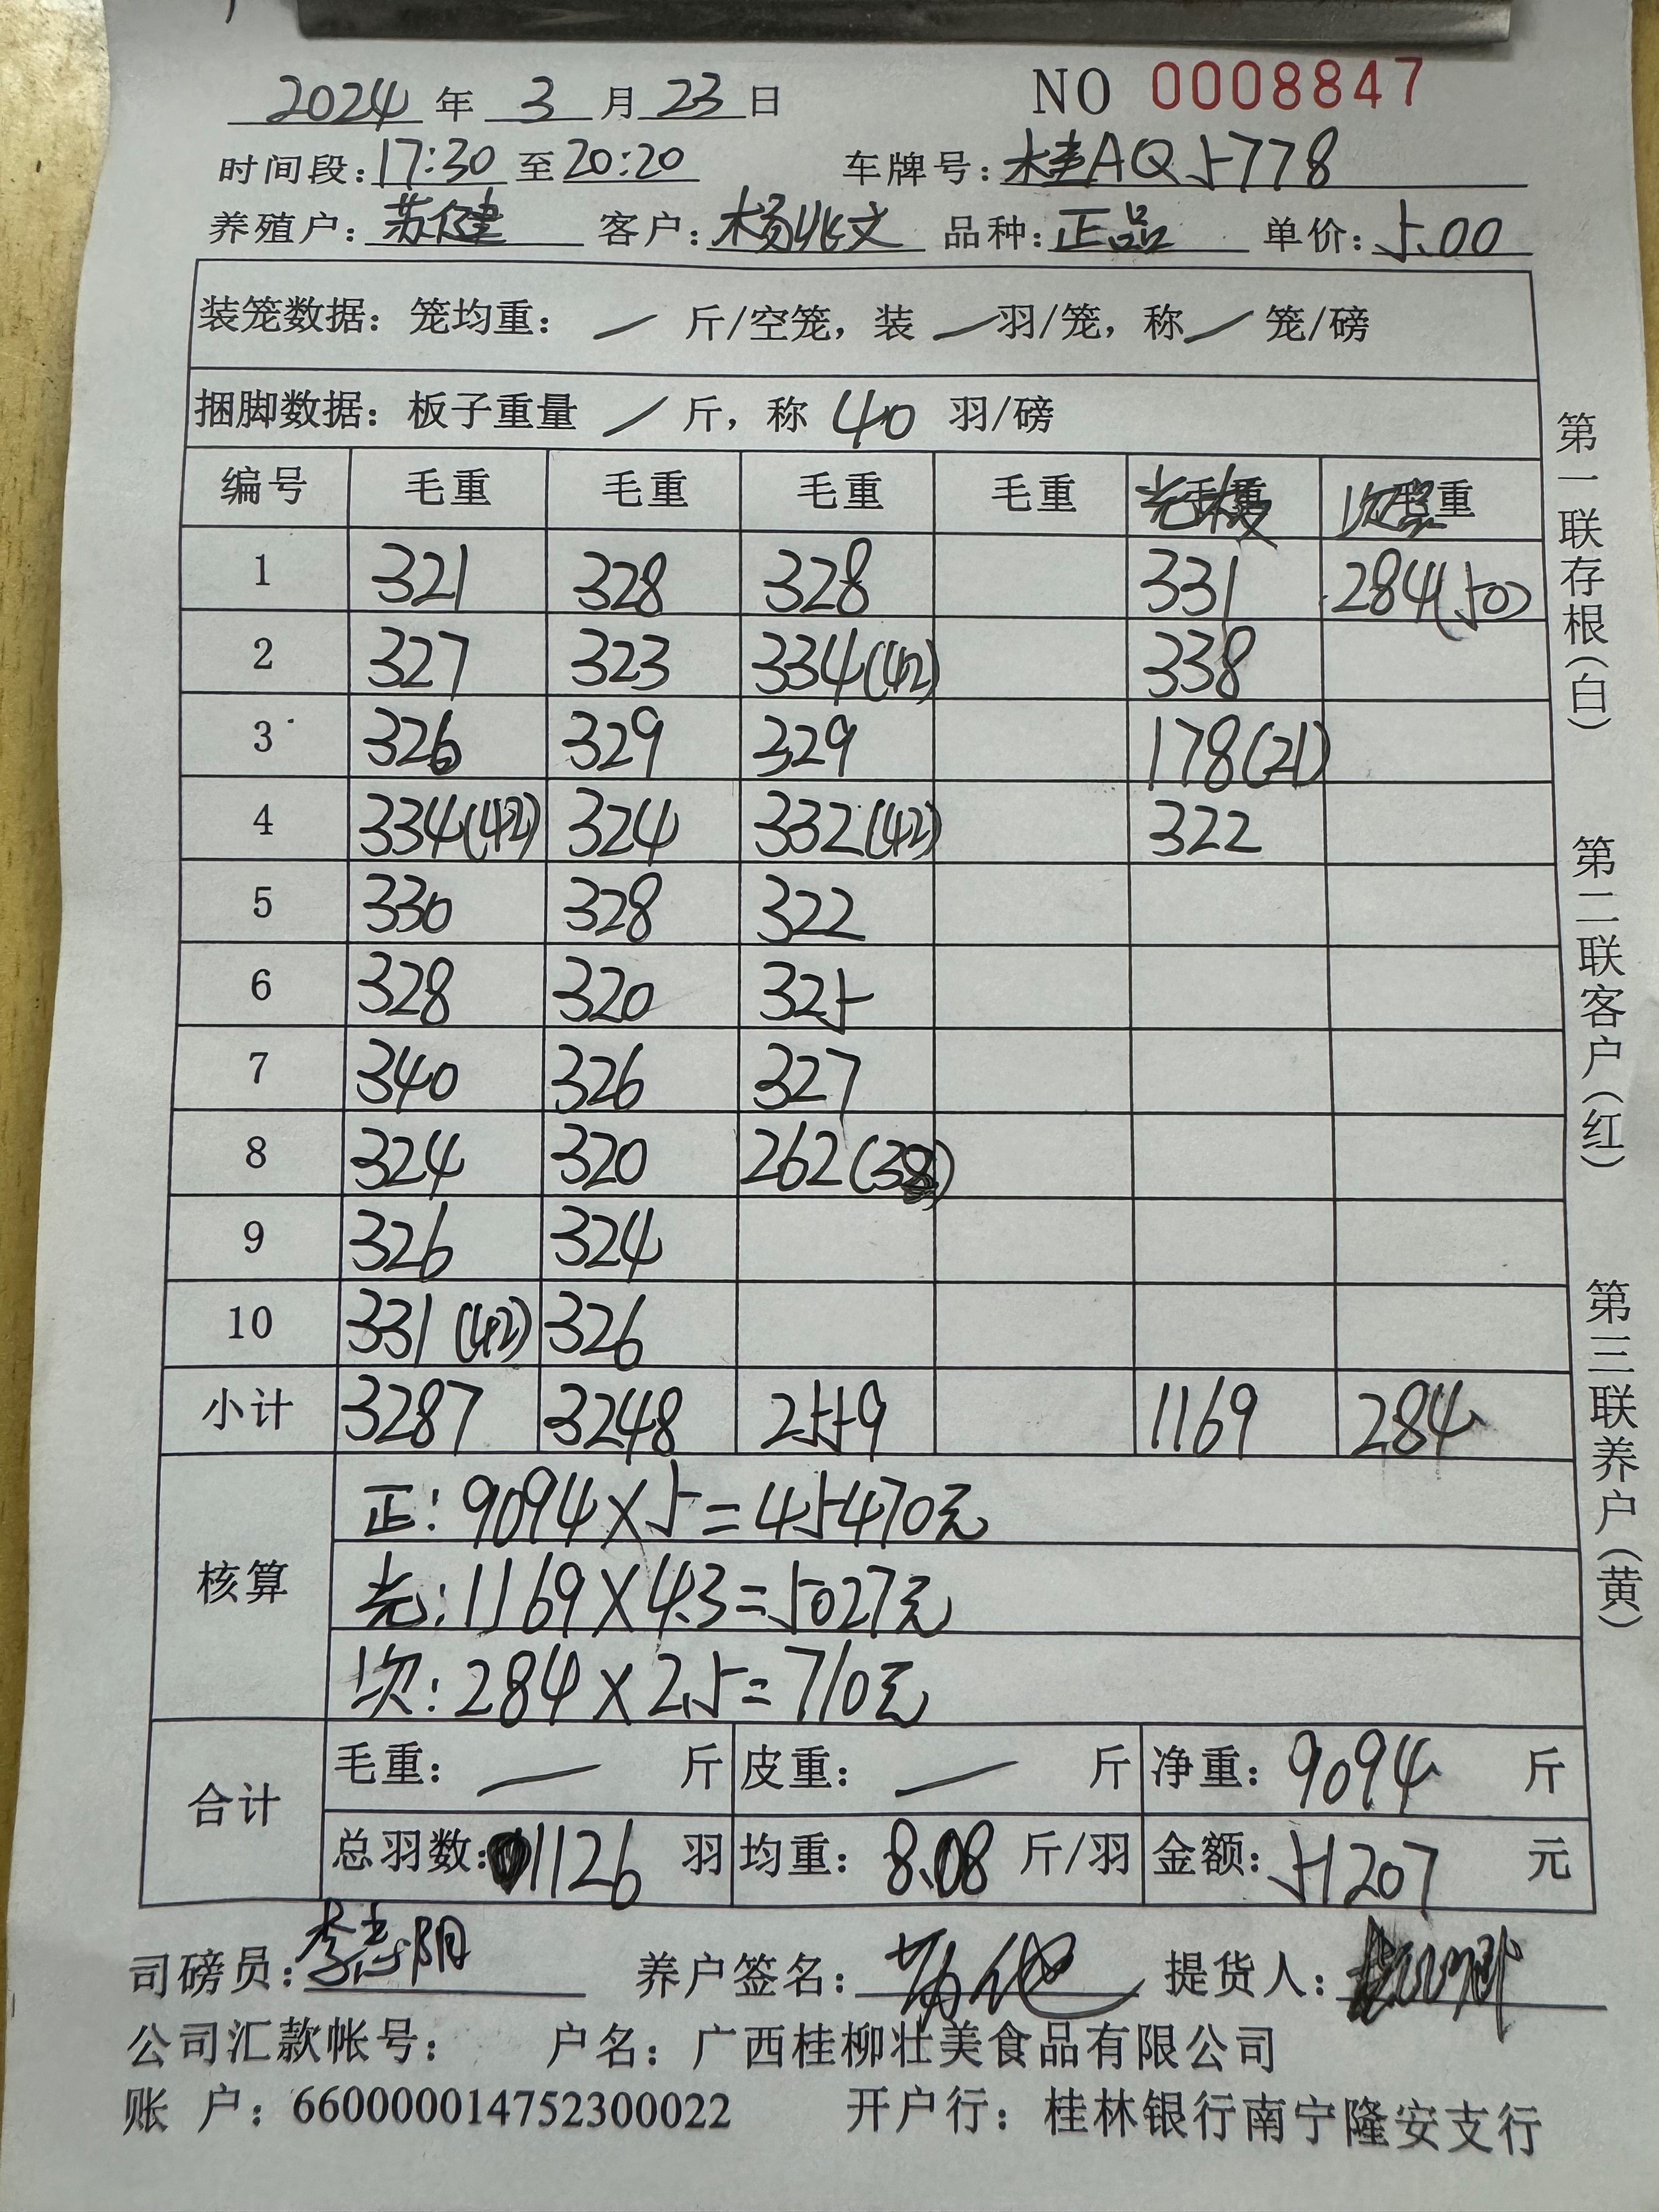 2024 年 3 月 23 日 NO 0008847
时间段: 17:30 至 20:20 车牌号: 桂AQ5778
养殖户: 苏健 客户: 杨兆文 品种: 正品 单价: 5.00
装笼数据: 笼均重: — 斤/空笼, 装 — 羽/笼, 称 — 笼/磅
捆脚数据: 板子重量 — 斤, 称 40 羽/磅
编号 毛重 毛重 毛重 毛重 毛重 重
1 321 328 328 331 284(50)
2 327 323 334(42) 338
3 326 329 329 178(21)
4 334(42) 324 332(42) 322
5 330 328 322
6 328 320 325
7 340 326 327
8 324 320 262(38)
9 326 324
10 331(42) 326
小计 3287 3248 2559 1169 284
核算
正: 9094×5=45470元
光: 1169×4.3=5027元
次: 284×2.5=710元
合计
毛重: — 斤 皮重: — 斤 净重: 9094 斤
总羽数: 1126 羽 均重: 8.08 斤/羽 金额: 51207 元
司磅员: 养户签名: 提货人:
公司汇款帐号: 户名: 广西桂柳壮美食品有限公司
账 户: 660000014752300022 开户行: 桂林银行南宁隆安支行
第一联存根(白)
第二联客户(红)
第三联养户(黄)